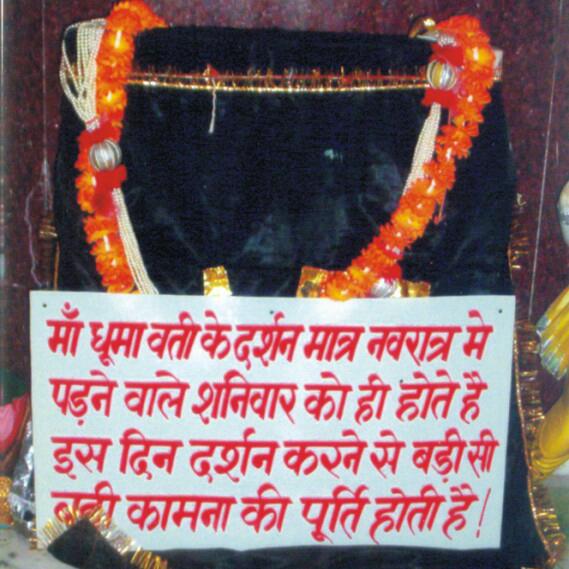 माँ धूमा वती के दर्शन मात्र नवरात्र मे
पड़ने वाले शनिवार को ही होते है
इस दिन दर्शन करने से बड़ी सी
बड़ी कामना की पूर्ति होती है!